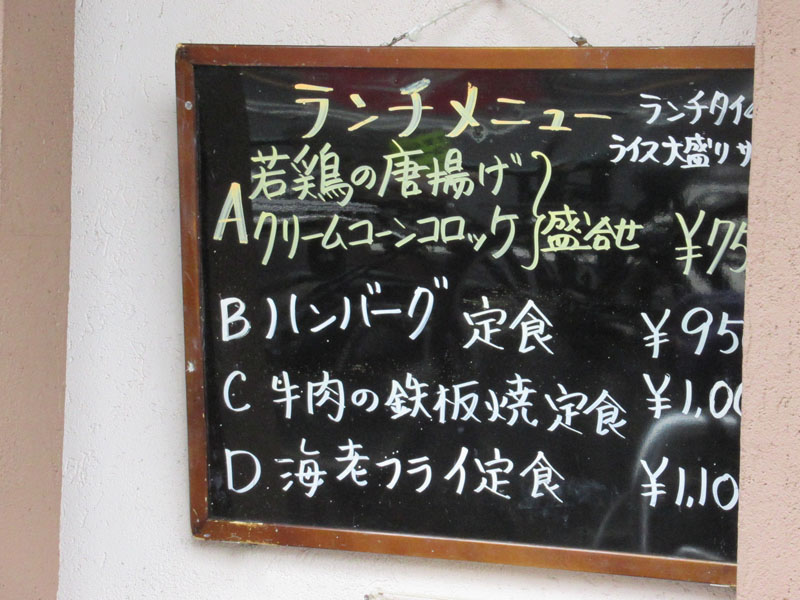 ランチメニュー
ランチタイム
ライス大盛りサ
A 若鶏の唐揚げ
クリームコーンコロッケ
盛合せ ¥75
B ハンバーグ 定食 ¥95
C 牛肉の鉄板焼定食 ¥1,00
D 海老フライ定食 ¥1,10